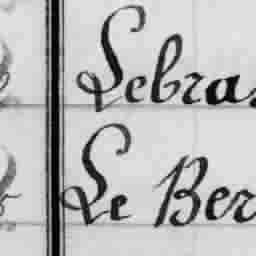 Lebras
Le Ber